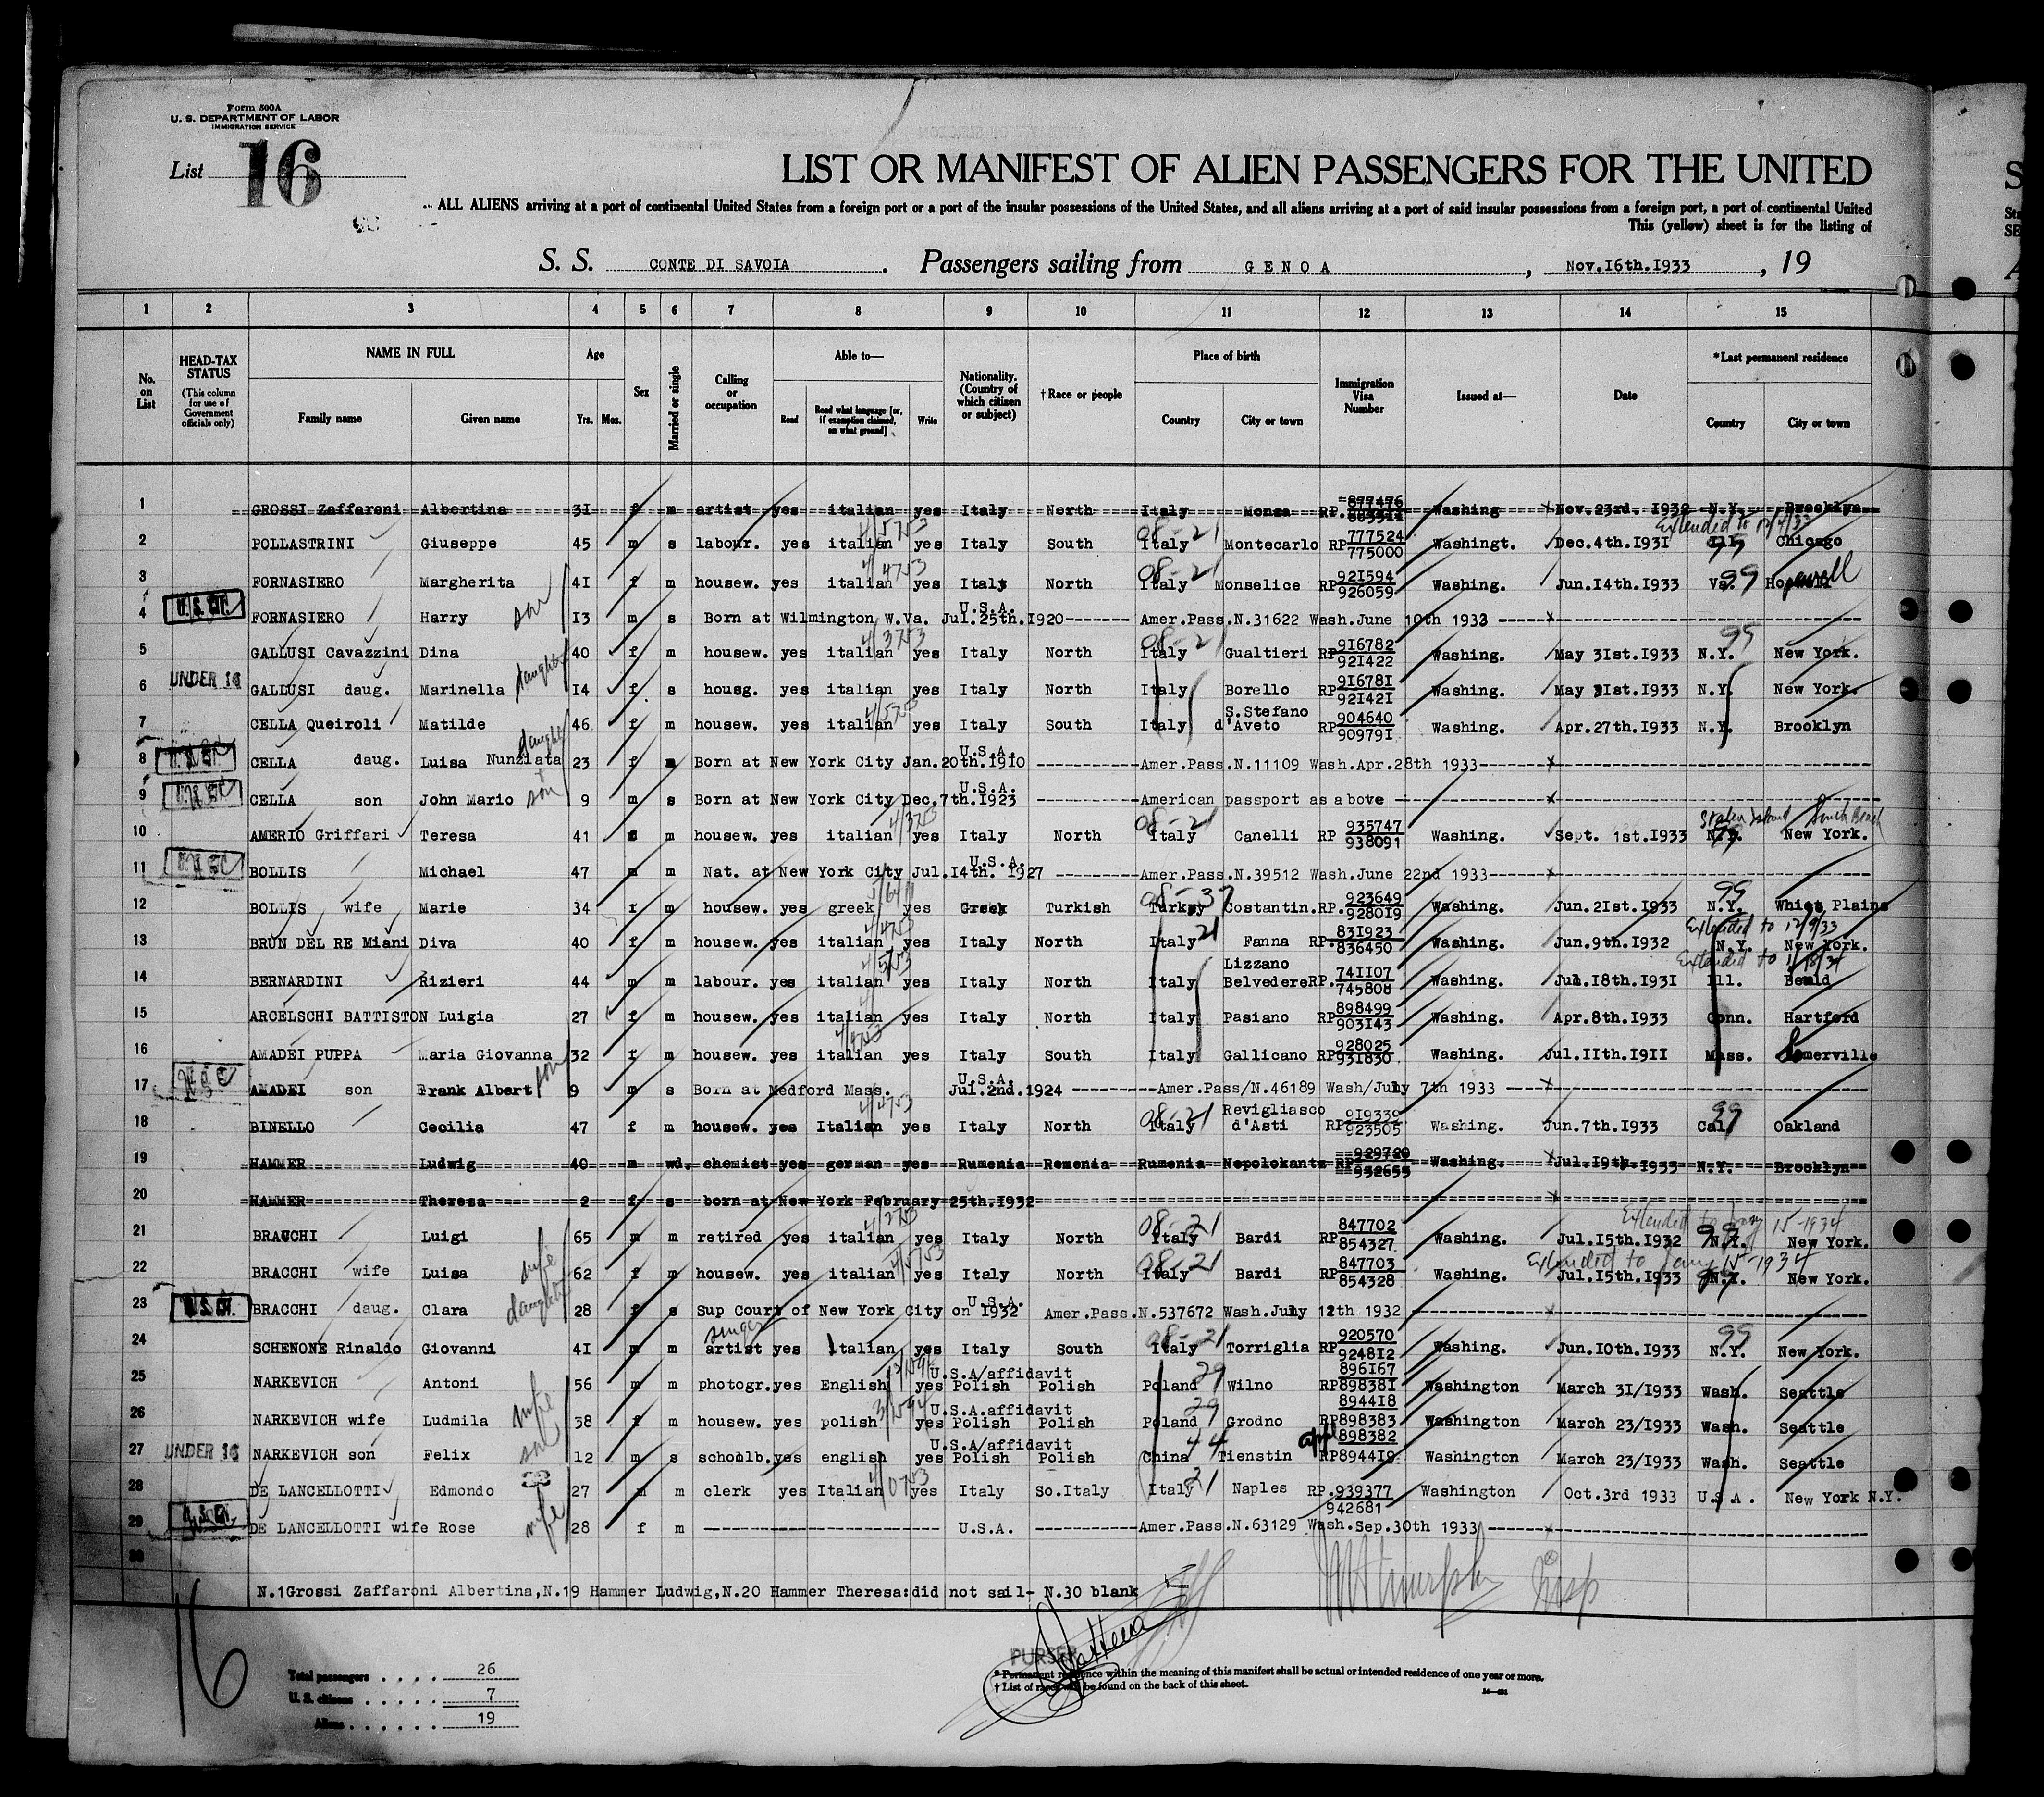 Form 500A
U. S. DEPARTMENT OF LABOR
IMMIGRATION SERVICE
List 16
LIST OR MANIFEST OF ALIEN PASSENGERS FOR THE UNITED
ALL ALIENS arriving at a port of continental United States from a foreign port or a port of the insular possessions of the United States, and all aliens arriving at a port of said insular possessions from a foreign port, a port of continental United
This (yellow) sheet is for the listing of
S. S. CONTE DI SAVOIA. Passengers sailing from GENOA, Nov.16th.1933, 19
1 2 3 4 5 6 7 8 9 10 11 12 13 14 15
No. on List
HEAD-TAX STATUS (This column for use of Government officials only)
NAME IN FULL Family name Given name
Age Yrs. Mos.
Sex
Married or single
Calling or occupation
Able to— Read Read what language [or, if exemption claimed, on what ground] Write
Nationality. (Country of which citizen or subject)
†Race or people
Place of birth Country City or town
Immigration Visa Number
Issued at—
Date
*Last permanent residence Country City or town
1 GROSSI Zaffaroni Albertina 31 f m artist yes italian yes Italy North Italy Monza RP. 877476 Washing Nov.23rd. 1932 N.Y. Brooklyn
Extended to 12/4/33
2 POLLASTRINI Giuseppe 45 m s labour. yes italian yes Italy South Italy Montecarlo RP 777524 775000 Washingt. Dec.4th.1931 Ill. Chicago
3 FORNASIERO Margherita 41 f m housew. yes italian yes Italy North Italy Monselice RP 921594 926059 Washing. Jun.14th.1933 Va. Hopewell
4 U.S. CIT. FORNASIERO Harry son 13 m s Born at Wilmington W.Va. Jul.25th.1920 U.S.A. Amer.Pass.N.31622 Wash.June 10th 1933
5 GALLUSI Cavazzini Dina 40 f m housew. yes italian yes Italy North Italy Gualtieri RP 916782 921422 Washing. May 31st.1933 N.Y. New York.
6 UNDER 16 GALLUSI daug. Marinella daughter 14 f s housg. yes italian yes Italy North Italy Borello RP 916781 921421 Washing. May 31st.1933 N.Y. New York.
7 CELLA Queiroli Matilde 46 f m housew. yes italian yes Italy South Italy S.Stefano d'Aveto RP 904640 909791 Washing. Apr.27th.1933 N.Y. Brooklyn
8 CELLA daug. Luisa Nunziata daught 23 f Born at New York City Jan.20th.1910 U.S.A. Amer.Pass.N.11109 Wash.Apr.28th 1933
9 CELLA son John Mario son 9 m s Born at New York City Dec.7th.1923 U.S.A. American passport as above
10 AMERIO Griffari Teresa 41 f m housew. yes italian yes Italy North Italy Canelli RP 935747 938091 Washing. Sept. 1st.1933 N.Y. New York. Staten Island South Beach
11 BOLLIS Michael 47 m m Nat. at New York City Jul.14th. 1927 U.S.A. Amer.Pass.N.39512 Wash.June 22nd 1933
12 BOLLIS wife Marie 34 f m housew. yes greek yes Greek Turkish Turkey Costantin. RP. 923649 928019 Washing. Jun.21st.1933 N.Y. White Plains
Extended to 12/9/33
13 BRUN DEL RE Miani Diva 40 f m housew. yes italian yes Italy North Italy Fanna RP. 831923 836450 Washing. Jun.9th.1932 N.Y. New York.
Extended to 1/18/34
14 BERNARDINI Rizieri 44 m m labour. yes italian yes Italy North Italy Lizzano Belvedere RP. 741107 745808 Washing. Jul.18th.1931 Ill. Benld
15 ARCELSCHI BATTISTON Luigia 27 f m housew. yes italian yes Italy North Italy Pasiano RP 898499 903143 Washing. Apr.8th.1933 Conn. Hartford
16 AMADEI PUPPA Maria Giovanna 32 f m housew. yes italian yes Italy South Italy Gallicano RP 928025 931830. Washing. Jul.11th.1911 Mass. Somerville
17 AMADEI son Frank Albert son 9 m s Born at Medford Mass. Jul.2nd.1924 U.S.A. Amer.Pass/N.46189 Wash/July 7th 1933
18 BINELLO Cecilia 47 f m housew. yes Italian yes Italy North Italy Revigliasco d'Asti RP 919339 923505 Washing. Jun.7th.1933 Cal. Oakland
19 HAMMER Ludwig 40 m wd. chemist yes german yes Rumenia Remenia Rumenia Nepolokantz RP 929720 932655 Washing. Jul.19th.1933 N.Y. Brooklyn
20 HAMMER Theresa 2 f s born at New York February 25th.1932
Extended to Jany 15-1934
21 BRACCHI Luigi 65 m m retired yes italian yes Italy North Italy Bardi RP 847702 854327. Washing. Jul.15th.1932 N.Y. New York.
Extended to Jany 15-1934
22 BRACCHI wife Luisa wife 62 f m housew. yes italian yes Italy North Italy Bardi RP 847703 854328 Washing. Jul.15th.1933 N.Y. New York.
23 U.S. CIT. BRACCHI daug. Clara daughter 28 f s Sup Court of New York City on 1932 U.S.A. Amer.Pass.N.537672 Wash.July 12th 1932
24 SCHENONE Rinaldo Giovanni 41 m m singer artist yes Italian yes Italy South Italy Torriglia RP 920570 924812 Washing. Jun.10th.1933 N.Y. New York.
25 NARKEVICH Antoni 56 m m photogr. yes English yes U.S.A/affidavit Polish Polish Poland Wilno RP 896167 898381 Washington March 31/1933 Wash. Seattle
26 NARKEVICH wife Ludmila wife 38 f m housew. yes polish yes U.S.A.affidavit Polish Polish Poland Grodno RP 894418 898383 Washington March 23/1933 Wash. Seattle
27 UNDER 16 NARKEVICH son Felix son 12 m s schoolb. yes english yes U.S.A/affidavit Polish Polish China Tienstin appl RP 898382 894419. Washington March 23/1933 Wash. Seattle
28 DE LANCELLOTTI Edmondo 27 m m clerk yes Italian yes Italy So.Italy Italy Naples RP. 939377 942681 Washington Oct.3rd 1933 U.S.A. New York N.Y.
29 DE LANCELLOTTI wife Rose wife 28 f m U.S.A. Amer.Pass.N.63129 Wash.Sep.30th 1933
30
N.1Grossi Zaffaroni Albertina,N.19 Hammer Ludwig,N.20 Hammer Theresa:did not sail- N.30 blank
16
PURSER
Total passengers . . . . 26
U. S. citizens . . . . . 7
Aliens . . . . . . 19
* Permanent residence within the meaning of this manifest shall be actual or intended residence of one year or more.
† List of races will be found on the back of this sheet.